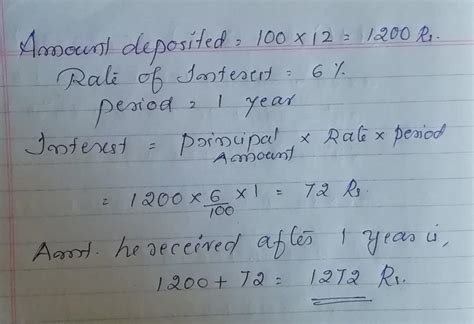 Amount deposited = 100 × 12 = 1200 Rs.
Rate of Interest = 6 %
period = 1 year
Interest = principal Amount × Rate × period
= 1200 × 6/100 × 1 = 72 Rs.
Amt. he received after 1 year is,
1200 + 72 = 1272 Rs.